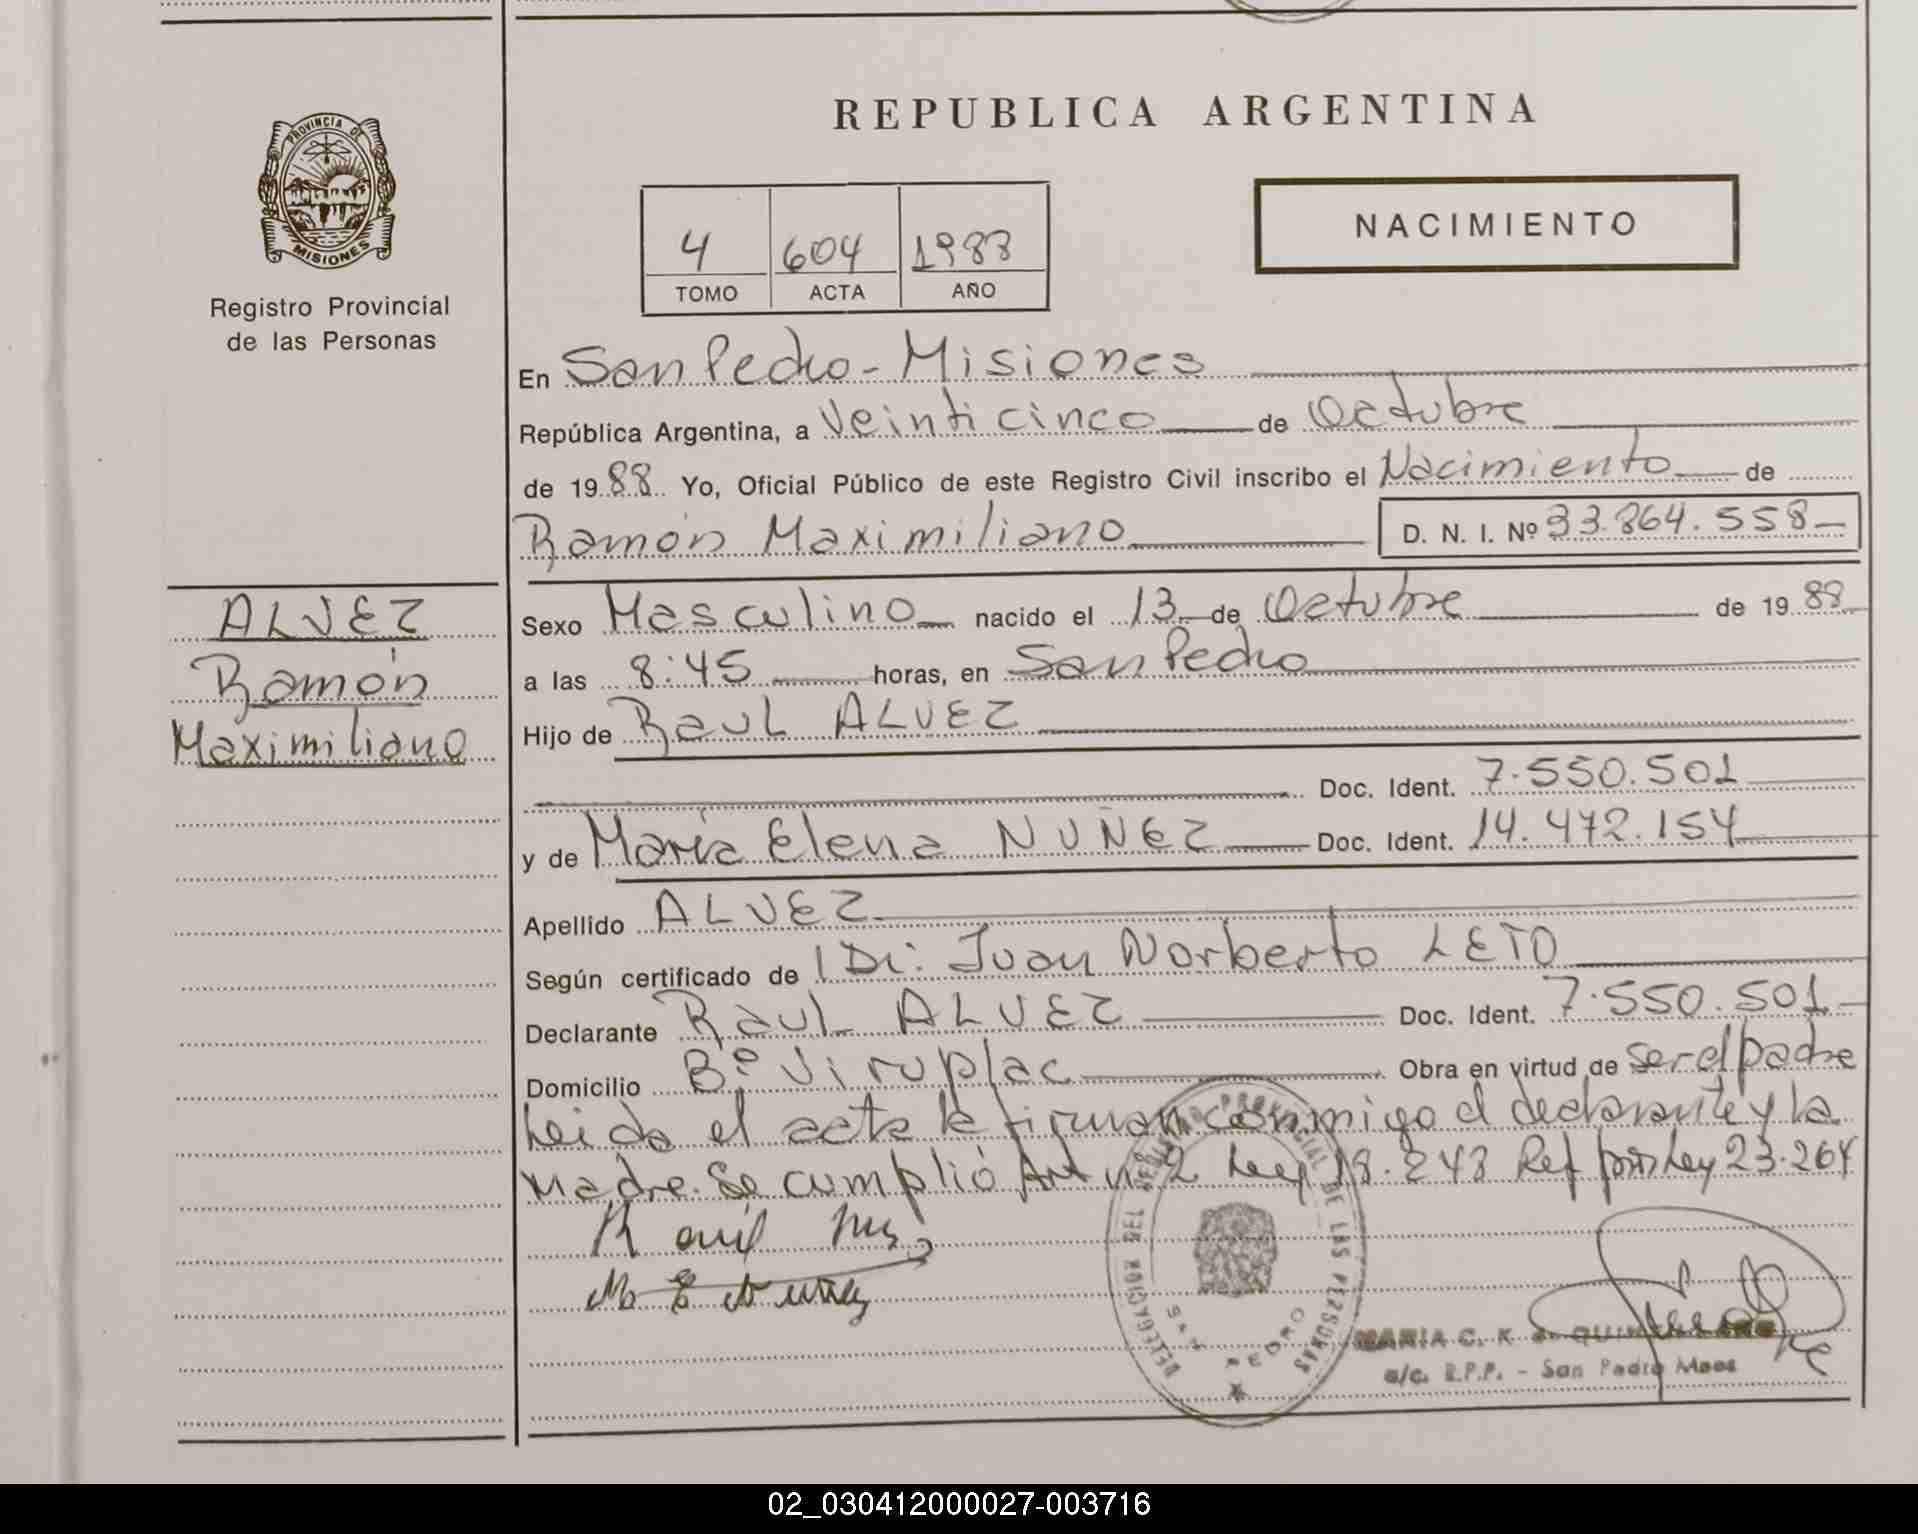 REPUBLICA ARGENTINA
PROVINCIA DE
MISIONES
Registro Provincial
de las Personas
NACIMIENTO
4 604 1988
TOMO ACTA AÑO
En San Pedro - Misiones
República Argentina, a Veinticinco de Octubre
de 1988 Yo, Oficial Público de este Registro Civil inscribo el Nacimiento de
Ramón Maximiliano D. N. I. Nº 33.864.558
ALVEZ
Ramón
Maximiliano
Sexo Masculino nacido el 13 de Octubre de 1988
a las 8:45 horas, en San Pedro
Hijo de Raul ALVEZ
Doc. Ident. 7.550.501
y de María Elena NUÑEZ Doc. Ident. 14.472.154
Apellido ALVEZ
Según certificado de Dr. Juan Norberto LETO
Declarante Raul ALVEZ Doc. Ident. 7.550.501
Domicilio Bº Viruplac Obra en virtud de ser el padre
Leida el acta la firman conmigo el declarante y la
madre. Se cumplió Art nº 2 Ley 18.248 Ref por Ley 23.264
Raul
M E Nuñez
DELEGACION DEL REGISTRO PROVINCIAL DE LAS PERSONAS
SAN PEDRO
MARIA C. K.
a/c. R.P.P. - San Pedro Mnes
02_030412000027-003716